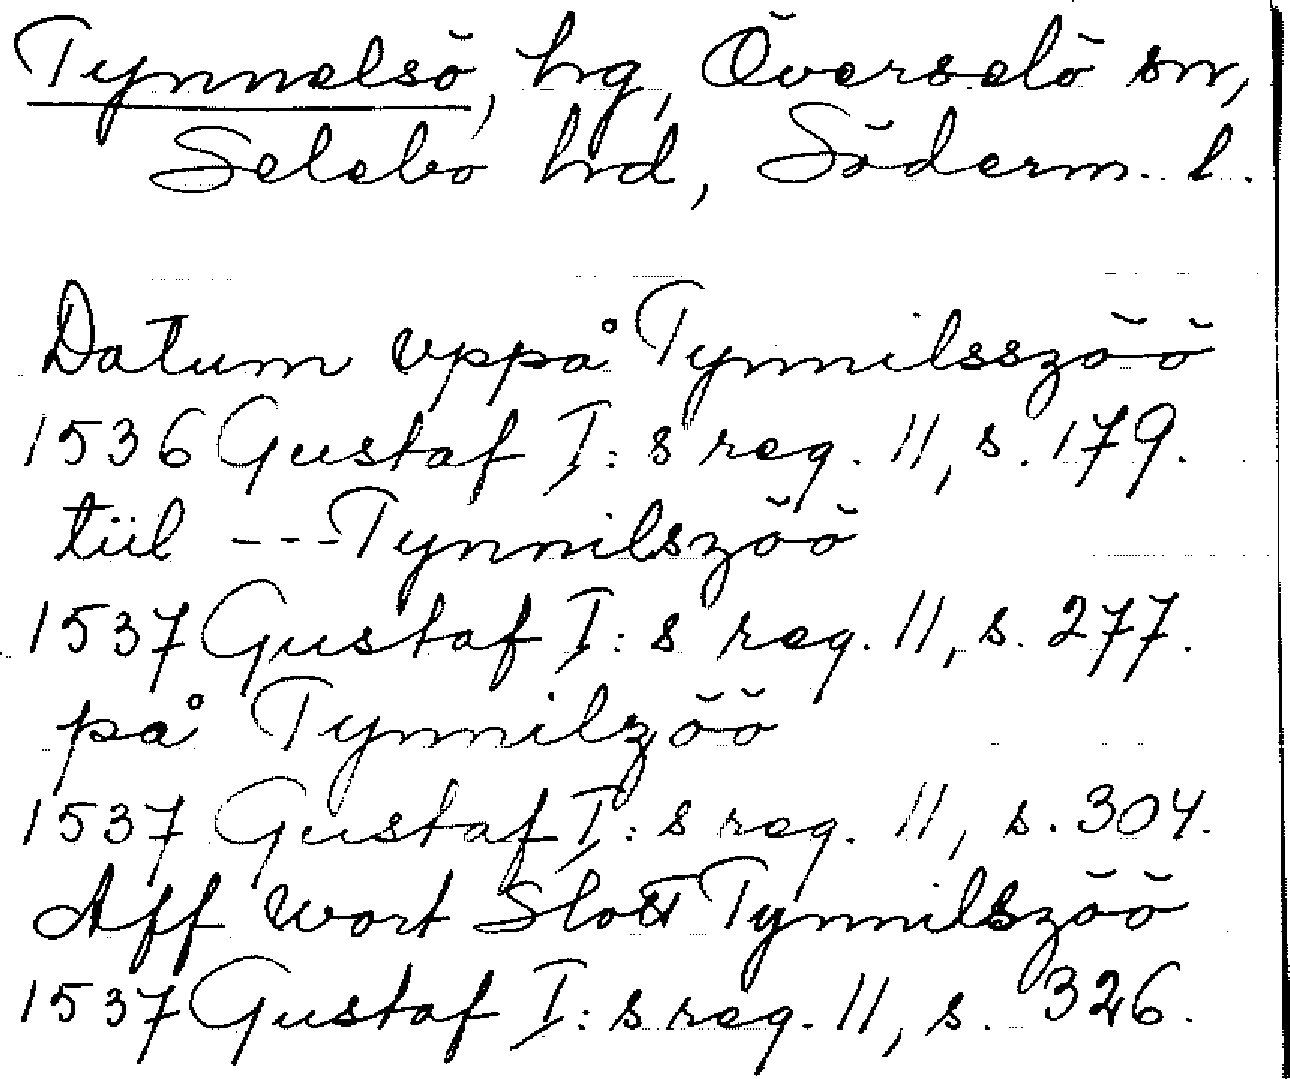 Tynnelsö, hg, Överselö sn,
Selebo hd, Söderm. l.
Datum vppå Tynnilsszöö
1536 Gustaf I:s reg. 11, s. 179.
tiil --- Tynnilszöö
1537 Gustaf I:s reg. 11, s. 277.
på Tynnilzöö
1537 Gustaf I:s reg. 11, s. 304.
Aff wort Slott Tynnilszöö
1537 Gustaf I:s reg. 11, s. 326.